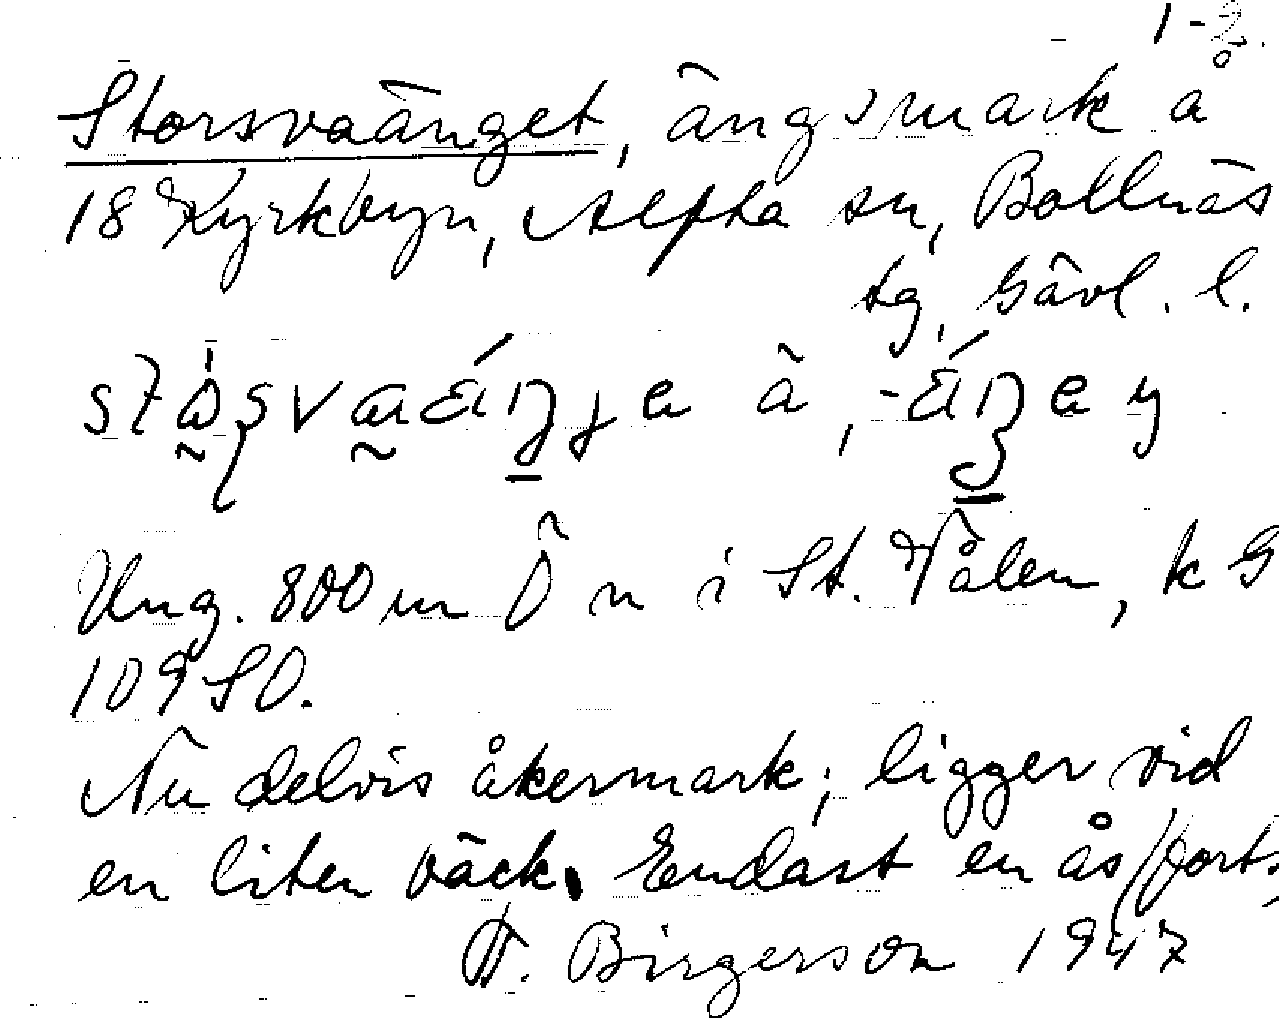 1-2.
Storsvaänget, ängsmark å
18 Kyrkbyn, Alfta sn, Bollnäs
tg, Gävl. l.
ä,
Ung. 800 m Ö n i St. Vålen, k G
109 SO.
Nu delvis åkermark; ligger vid
en liten bäck. Endast en ås (forts,
T. Birgerson 1947